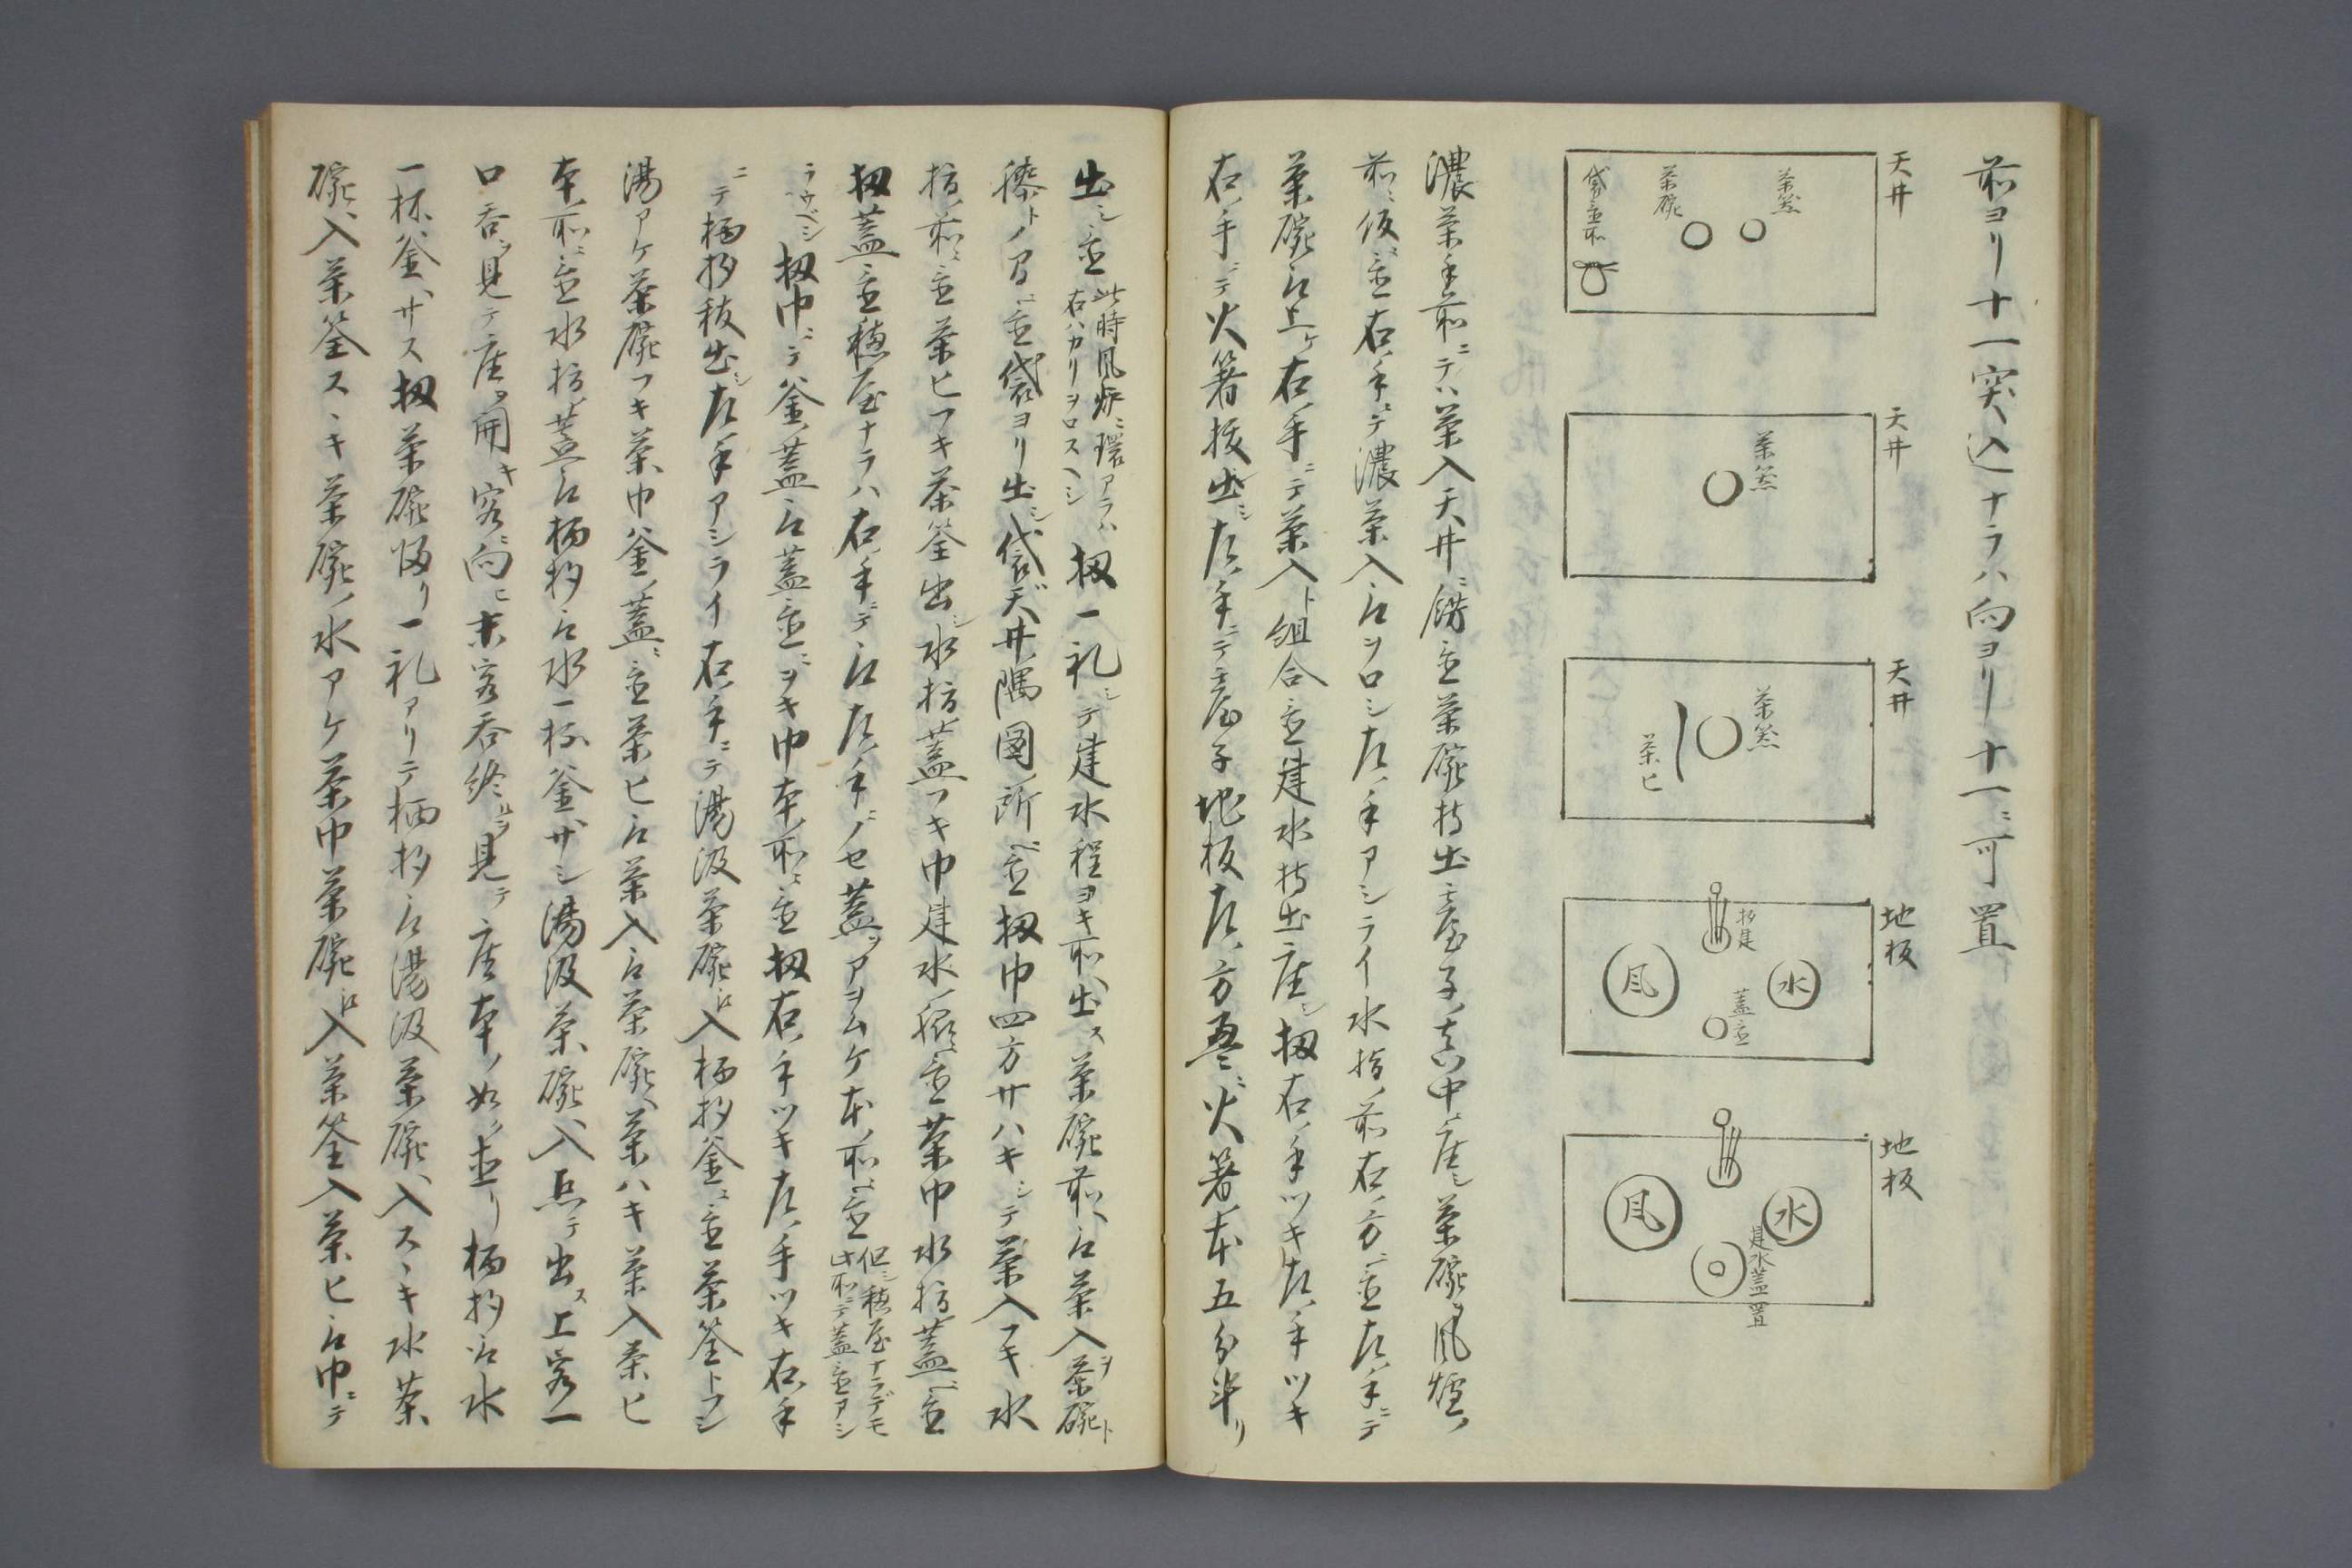 前ヨリ十一突込ナラハ向ヨリ十一ニ可置
天井
茶入
茶碗
袋置所
天井
天井
茶匕
地板
杓建
水
風
蓋置
地板
水
風
建水蓋置
濃茶手前ニテハ茶入天井ニ餝置茶碗持出臺子ノ真中ニ座シ茶碗ヲ風爐ノ
前ニ仮ニ置右ノ手ニテ濃茶入取ヲロシ左ノ手アシライ水指ノ前右ノ方ニ置左ノ手ニテ
茶碗取上ケ右ノ手ニテ茶入ト組合置建水持出座シ扨右ノ手ツキ左ノ手ツキ
右ノ手ニテ火箸抜出シ左ノ手ニテ臺子地板左ノ方畳ニ火箸本五分半リ
出シ置此時風炉ニ環アラハ
右ハカリヲロスヘシ
扨一礼シテ建水程ヨキ所ヘ出ス茶碗前ヘ取茶入ヲ茶碗ト
膝トノ間ニ置袋ヨリ出シ袋ヲ天井ノ隅図ノ所ヘ置扨巾四方サハキシテ茶入フキ水
指ノ前ニ置茶匕フキ茶筌出シ水指ノ蓋フキ巾建水ノ脇ニ置茶巾水指ノ蓋ニ置
扨蓋置穂屋ナラハ右ノ手ニテ取左ノ手ニノセ蓋ヲアヲムケ本ノ所ニ置
但シ穂屋ナラデモ
此所ニテ蓋置アシ
ラウベシ扨巾ニテ釜ノ蓋取蓋置ニヲキ巾本ノ所ニ置扨右ノ手ツキ左ノ手ツキ右ノ手
ニテ柄杓抜出シ左ノ手アシライ右ノ手ニテ湯汲茶碗ニ入柄杓釜ニ置茶筌トフシ
湯アケ茶碗フキ茶巾釜ノ蓋ニ置茶匕取茶入取茶碗ヘ茶ハキ茶入茶匕
本ノ所ニ置水指ノ蓋取柄杓取水一杯釜ヘサシ湯汲茶碗ヘ入点テ出ス上客一
口呑ヲ見テ座ヲ開キ客ニ向ヒ末客呑終ルヲ見テ座本ノ如ク直リ柄杓取水
一杯釜ヘサス扨茶碗返リ一礼アリテ柄杓取湯汲茶碗ヘ入スヽキ水茶
碗ヘ入茶筌スヽキ茶碗ノ水アケ茶巾茶碗ニ入茶筌入茶匕取巾ニテ